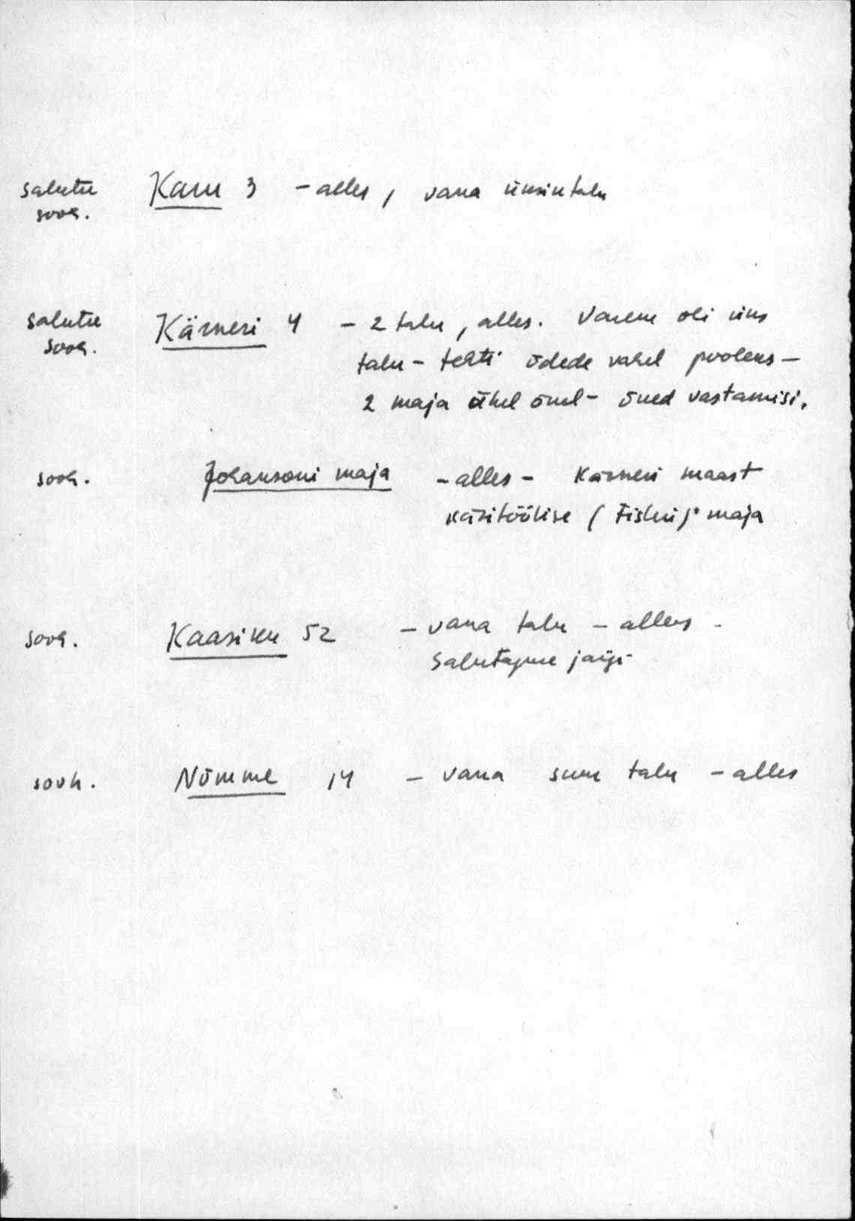 salutu Karu 3 - alles, vana üksiktalu
sooh.
salutu Kärneri 4 - 2 talu, alles. Varem oli üks
sooh. talu - tehti õdede vahel pooleks -
2 maja ühel õuel - õued vastamisi.
sooh. Johansoni maja - alles - Kärneri maast
käsitöölise (Tisleri) maja
sooh. Kaasiku 52 - vana talu - alles -
Salutaguse järgi
sovh. Nõmme 14 - vana suur talu - alles